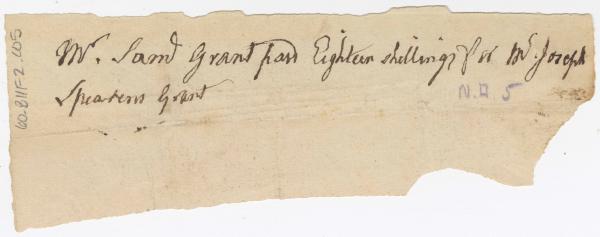 Mr. Samˡ Grant paid Eighteen shillings for Mr. Joseph
Spearens Grant
N.D 5
60.811F-2.005